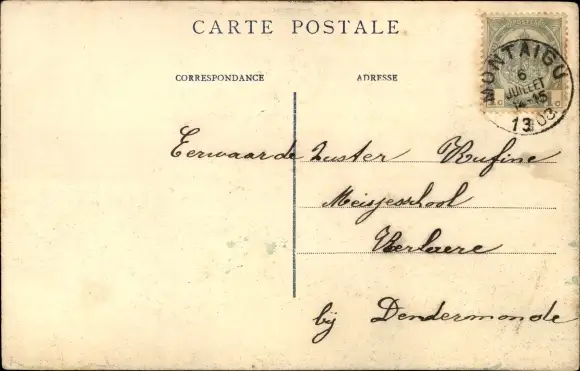 CARTE POSTALE
CORRESPONDANCE ADRESSE
MONTAIGU
6
JUILLET
14-15
1303
Eerwaarde Zuster Rufine
Meisjesshool
Berlaere
bij Dendermonde